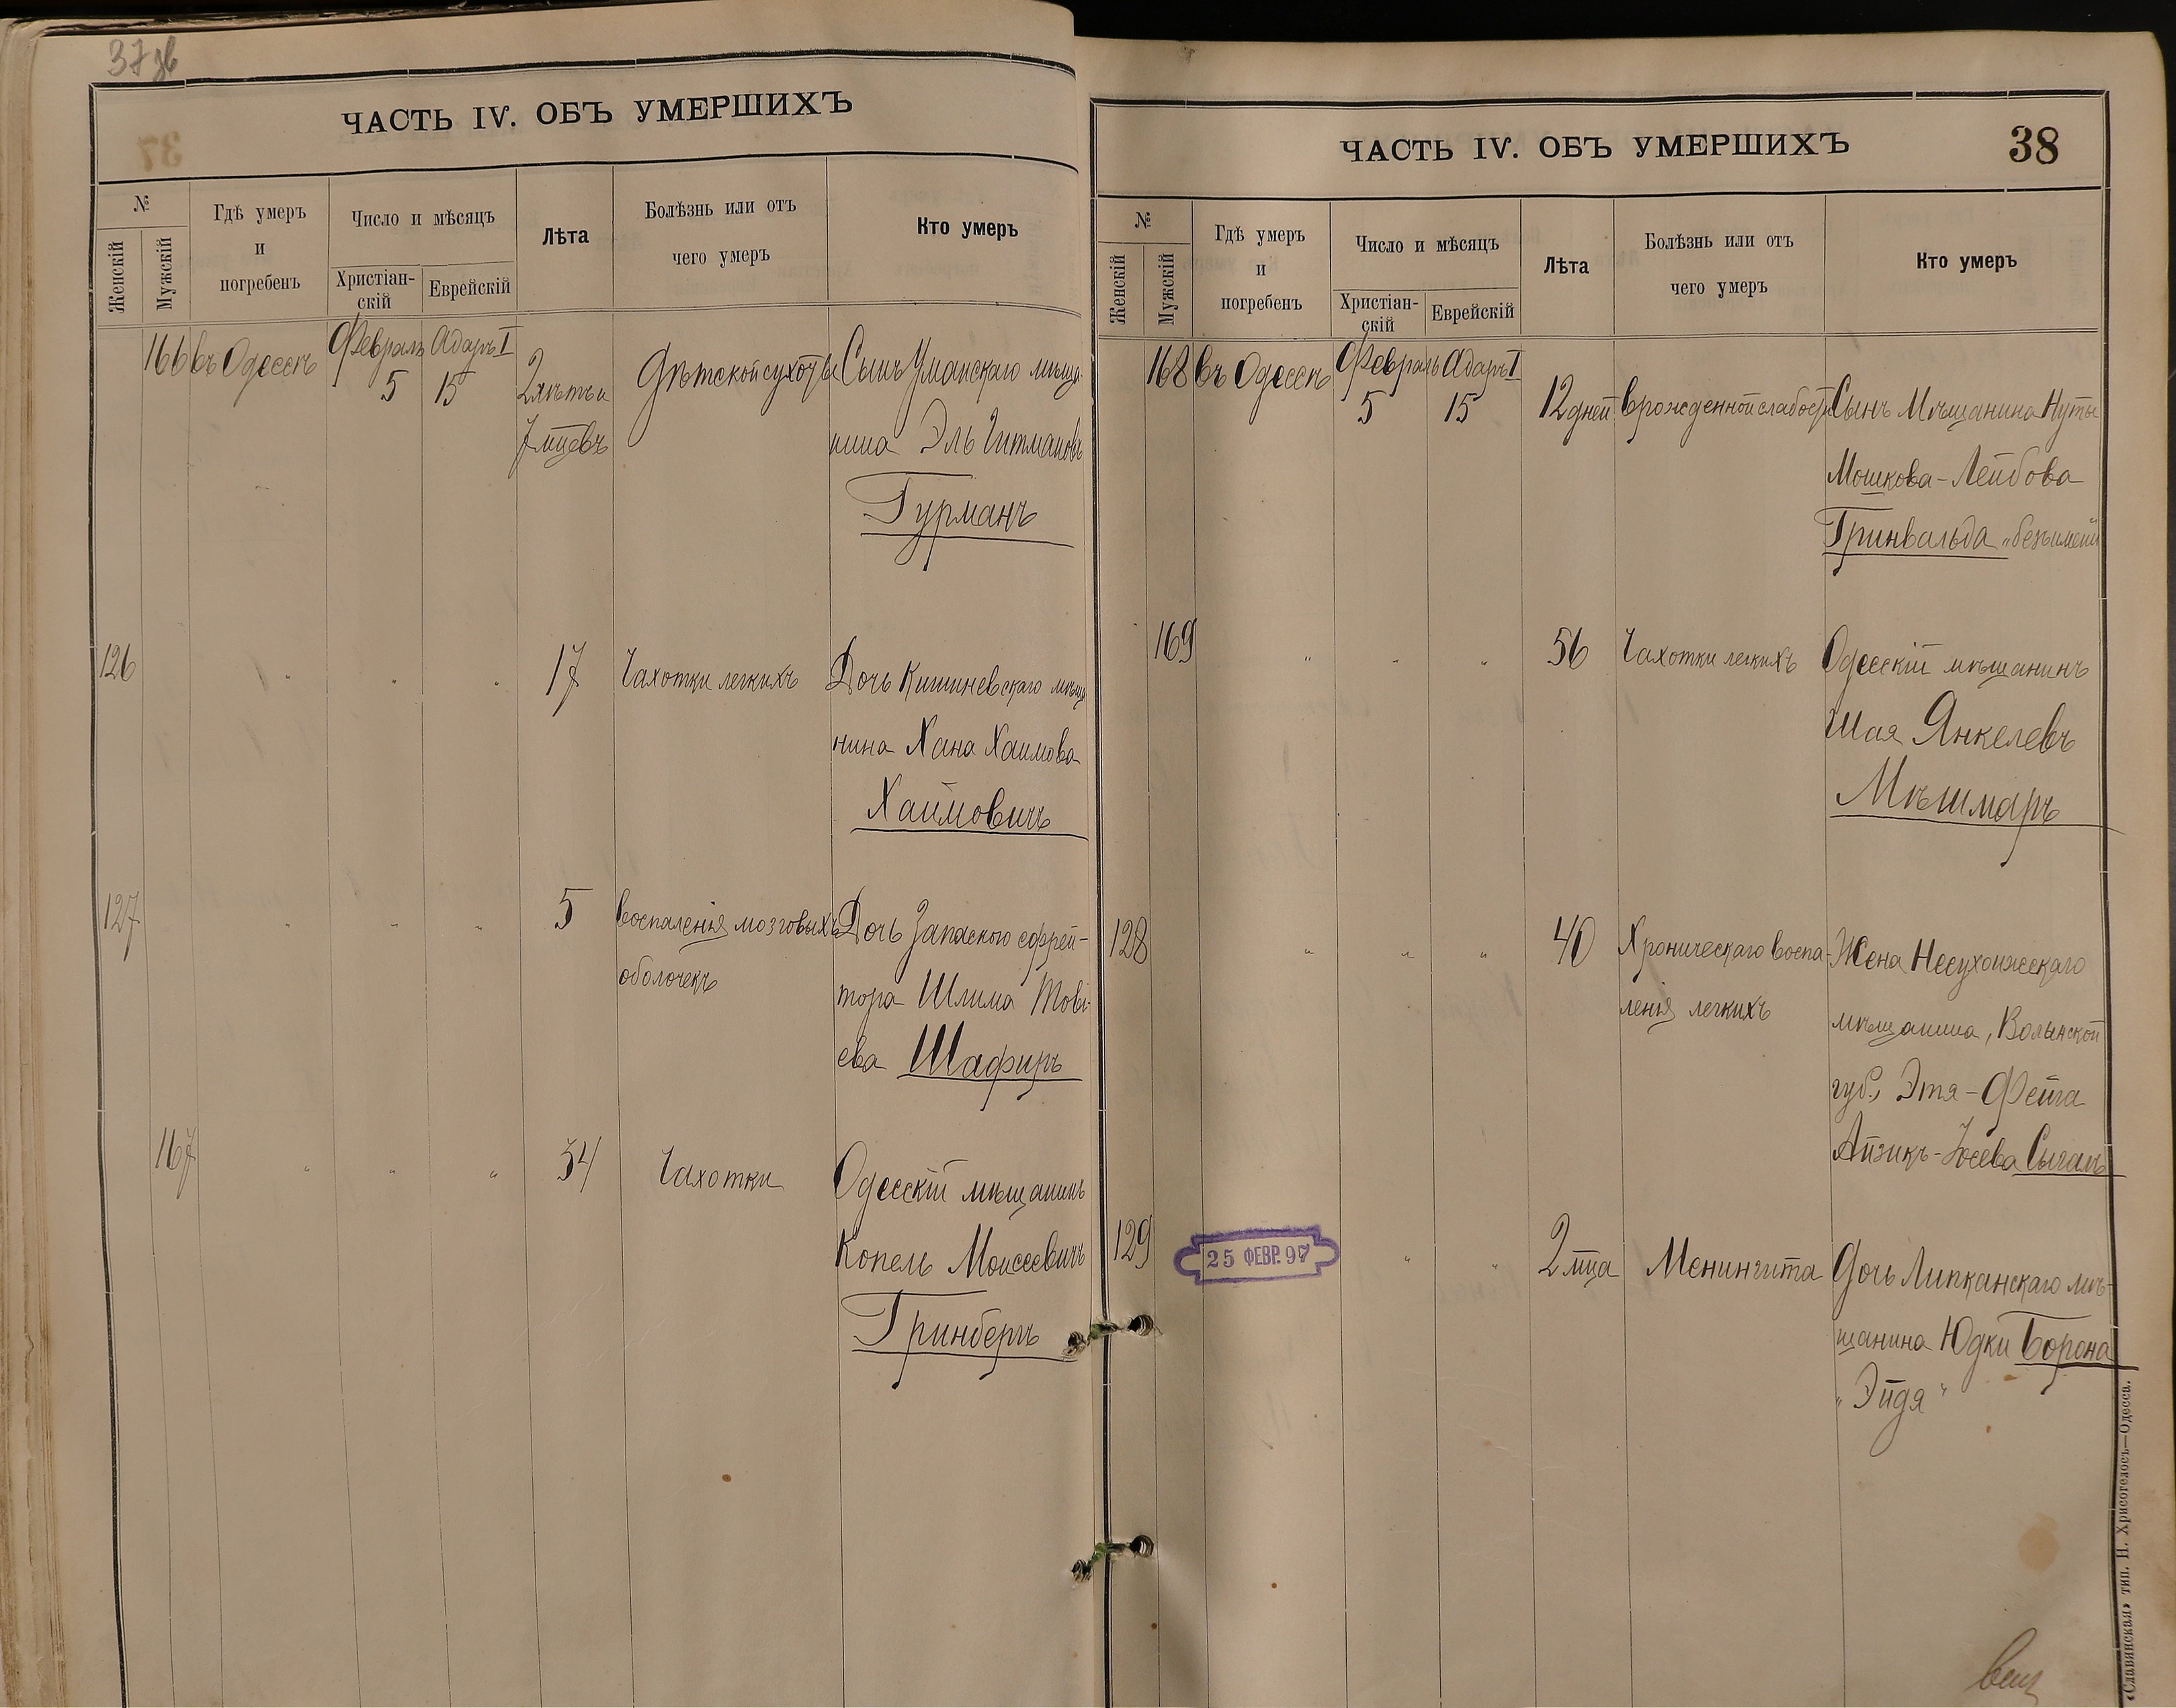 37 зв
ЧАСТЬ IV. ОБЪ УМЕРШИХЪ
№
Женскій
Мужскій
Гдѣ умеръ
и
погребенъ
Число и мѣсяцъ
Христіан-
скій
Еврейскій
Лѣта
Болѣзнь или отъ
чего умеръ
Кто умеръ
166 въ Одессѣ Февраль 5 Адаръ I 15 2 лѣтъ и
7 мцевъ
Дѣтской сухотки
Сынъ Уманскаго мѣща-
нина Эль Гитмановъ
Гурманъ
126 " " " 17 Чахотки легкихъ Дочь Кишиневскаго мѣща
нина Хана Хаимова
Хаймовичъ
127 " " " 5 воспаленія мозговыхъ
оболочекъ
Дочь Запаснаго ефрей-
тора Шлима Тові-
ева Шафиръ
167 " " " 34 Чахотки Одесскій мѣщанинъ
Копель Моисеевичъ
Гринбергъ
ЧАСТЬ IV. ОБЪ УМЕРШИХЪ
38
№
Женскій
Мужскій
Гдѣ умеръ
и
погребенъ
Число и мѣсяцъ
Христіан-
скій
Еврейскій
Лѣта
Болѣзнь или отъ
чего умеръ
Кто умеръ
168 въ Одессѣ Февраль 5 Адаръ I 15 12 дней врожденной слабости Сынъ Мѣщанина Нуты
Мошкова-Лейбова
Гринвальда "безъ имени
169 " " " 56 Чахотки легкихъ Одесскій мѣщанинъ
Шая Янкелевъ
Мѣшмаръ
128 " " " 40 Хроническаго воспа-
ленія легкихъ
Жена Несухоижескаго
мѣщанина, Волынской
губ., Этя-Фейга
Айзикъ-Іосева Сыгалъ
129 25 ФЕВР. 97 " " 2 мца Менингита Дочь Липканскаго мѣ-
щанина Юдки Борона
"Эйдя"
«Славянская» тип. Н. Хрисогелосъ—Одесса.